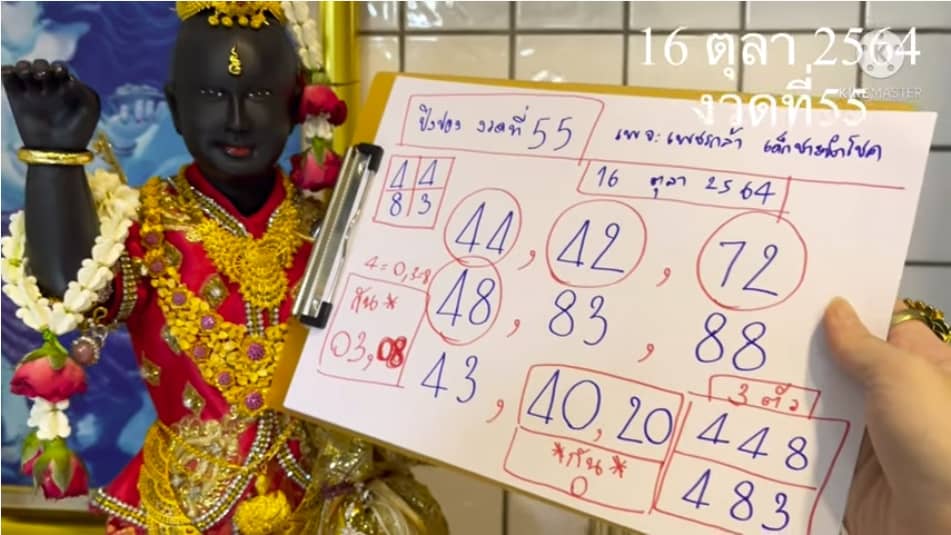 16 ตุลา 2564
KINEMASTER
งวดที่ 55
ปิงปอง งวดที่ 55
เพจ: เพชรกล้า เด็กชายนำโชค
16 ตุลา 2564
4 4
8 3
44, 42, 72
4 = 0, 3-8
กัน *
03, 08
48, 83, 88
43, 40, 20
*กัน*
0
3 ตัว
448
483